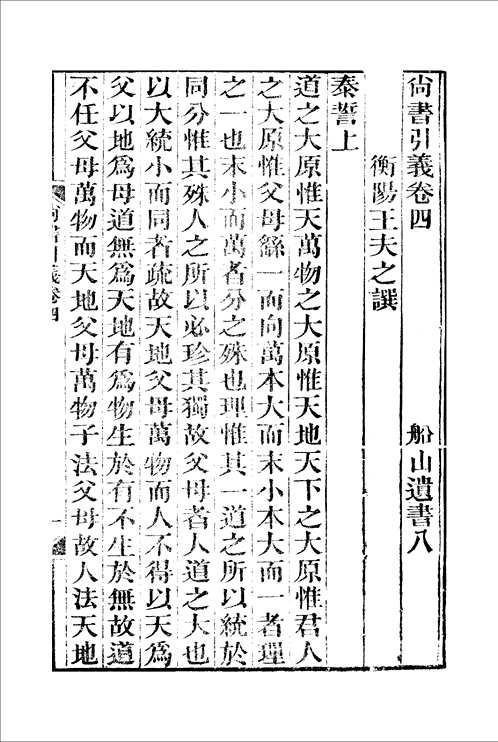 尙書引義卷四 船山遺書八
衡陽王夫之譔
泰誓上
道之大原惟天萬物之大原惟天地天下之大原惟君人
之大原惟父母繇一而向萬本大而末小本大而一者理
之一也末小而萬者分之殊也理惟其一道之所以統於
同分惟其殊人之所以必珍其獨故父母者人道之大也
以大統小而同者疏故天地父母萬物而人不得以天爲
父以地爲母道無爲天地有爲物生於有不生於無故道
不任父母萬物而天地父母萬物子法父母故人法天地
書引義卷四 一